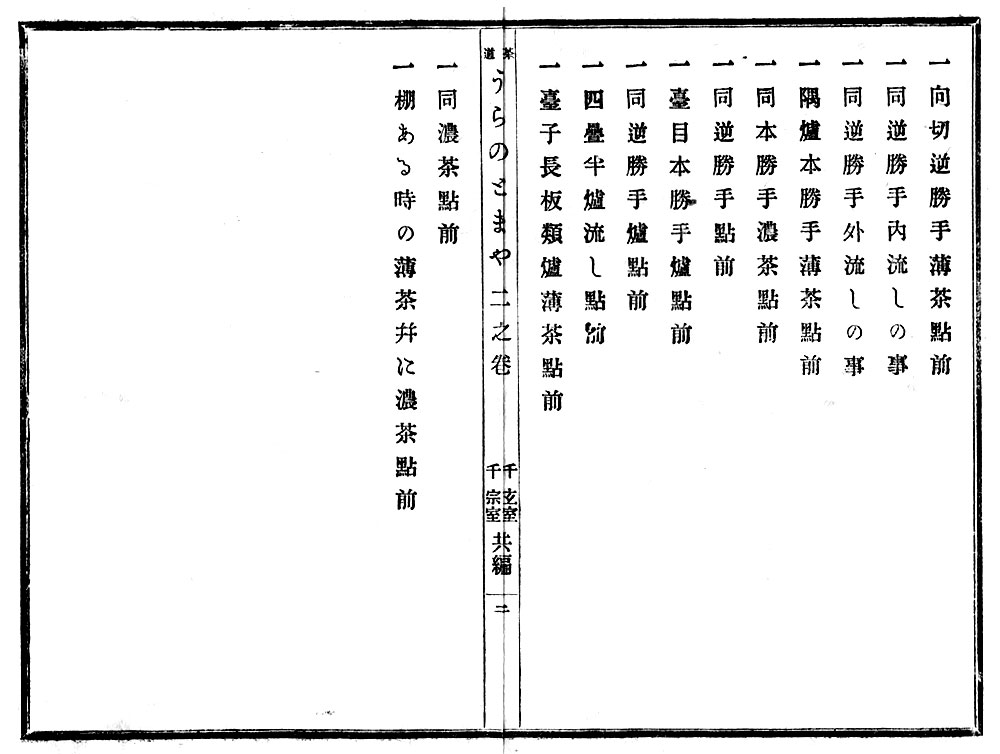 一向切逆勝手薄茶點前
一同逆勝手内流しの事
一同逆勝手外流しの事
一隅爐本勝手薄茶點前
一同本勝手濃茶點前
一同逆勝手點前
一臺目本勝手爐點前
一同逆勝手爐點前
一四疊半爐流し點前
一臺子長板類爐薄茶點前
茶道
うらのとまや二之卷
千玄室
千宗室
共編
二
一同濃茶點前
一棚ある時の薄茶幷に濃茶點前